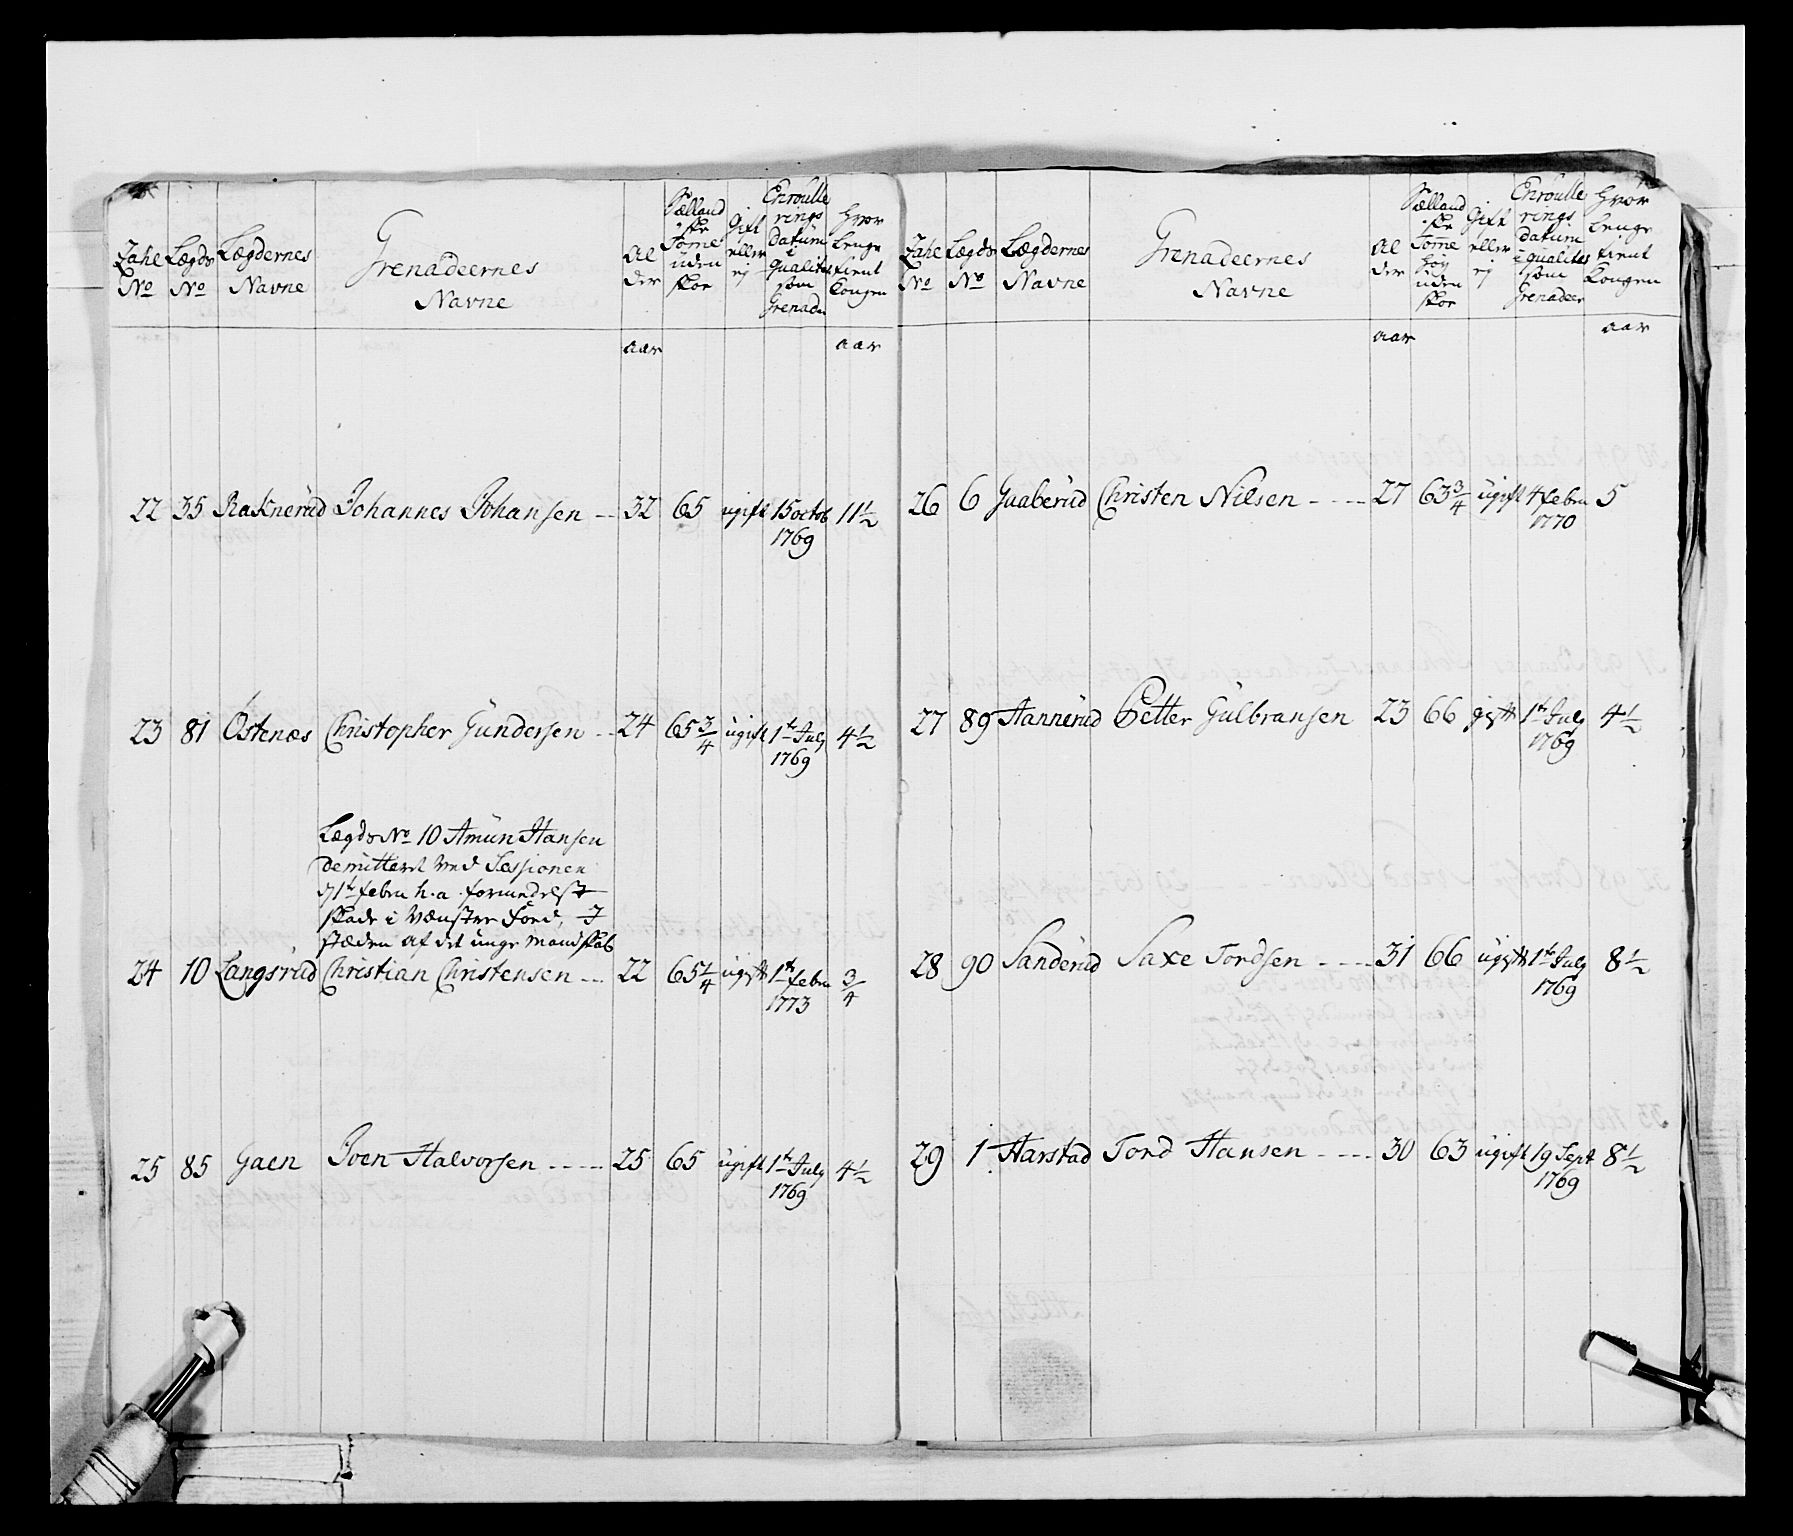 Zahl No
Lægds No
Lægdernes Navne
Grenadeernes Navne
Alder
Sællandske Tomme uden skoe
Gift eller ej
Enroulle rings datum i qualitet som Grenadr
Hvor lenge tient Kongen
aar aar
22 35 Raknerud Johannes Johansen -- 32 65 ugift 15 octob 11 1/2
1769
23 81 Østenæs Christopher Gundersen -- 24 65 3/4 ugift 1te July 4 1/2
1769
Lægds No 10 Amun Hansen
demitteret ved Sessionen
d 1te febru h.a. formedelst
skade i venstre Foed, I
stæden af det unge mandskab
24 10 Langsrud Christian Christensen -- 22 65 1/4 ugift 1te febru 3/4
1773
25 85 Gaen Joen Halvorsen ---- 25 65 ugift 1te July 4 1/2
1769
Zahl No
Lægds No
Lægdernes Navne
Grenadeernes Navne
Alder
Sællandske Tomme høj uden skoe
Gift eller ej
Enroulle rings datum i qualitet som Grenadeer
Hvor lenge tient Kongen
aar aar
26 6 Gaaberud Christen Nilsen ---- 27 63 3/4 ugift 4 febru 5
1770
27 89 Hannerud Petter Gulbransen 23 66 gift 1te July 4 1/2
1769
28 90 Sanderud Saxe Tordsen ---- 31 66 ugift 1te July 8 1/2
1769
29 1 Harstad Tord Hansen ---- 30 63 ugift 19 Sept 8 1/2
1769